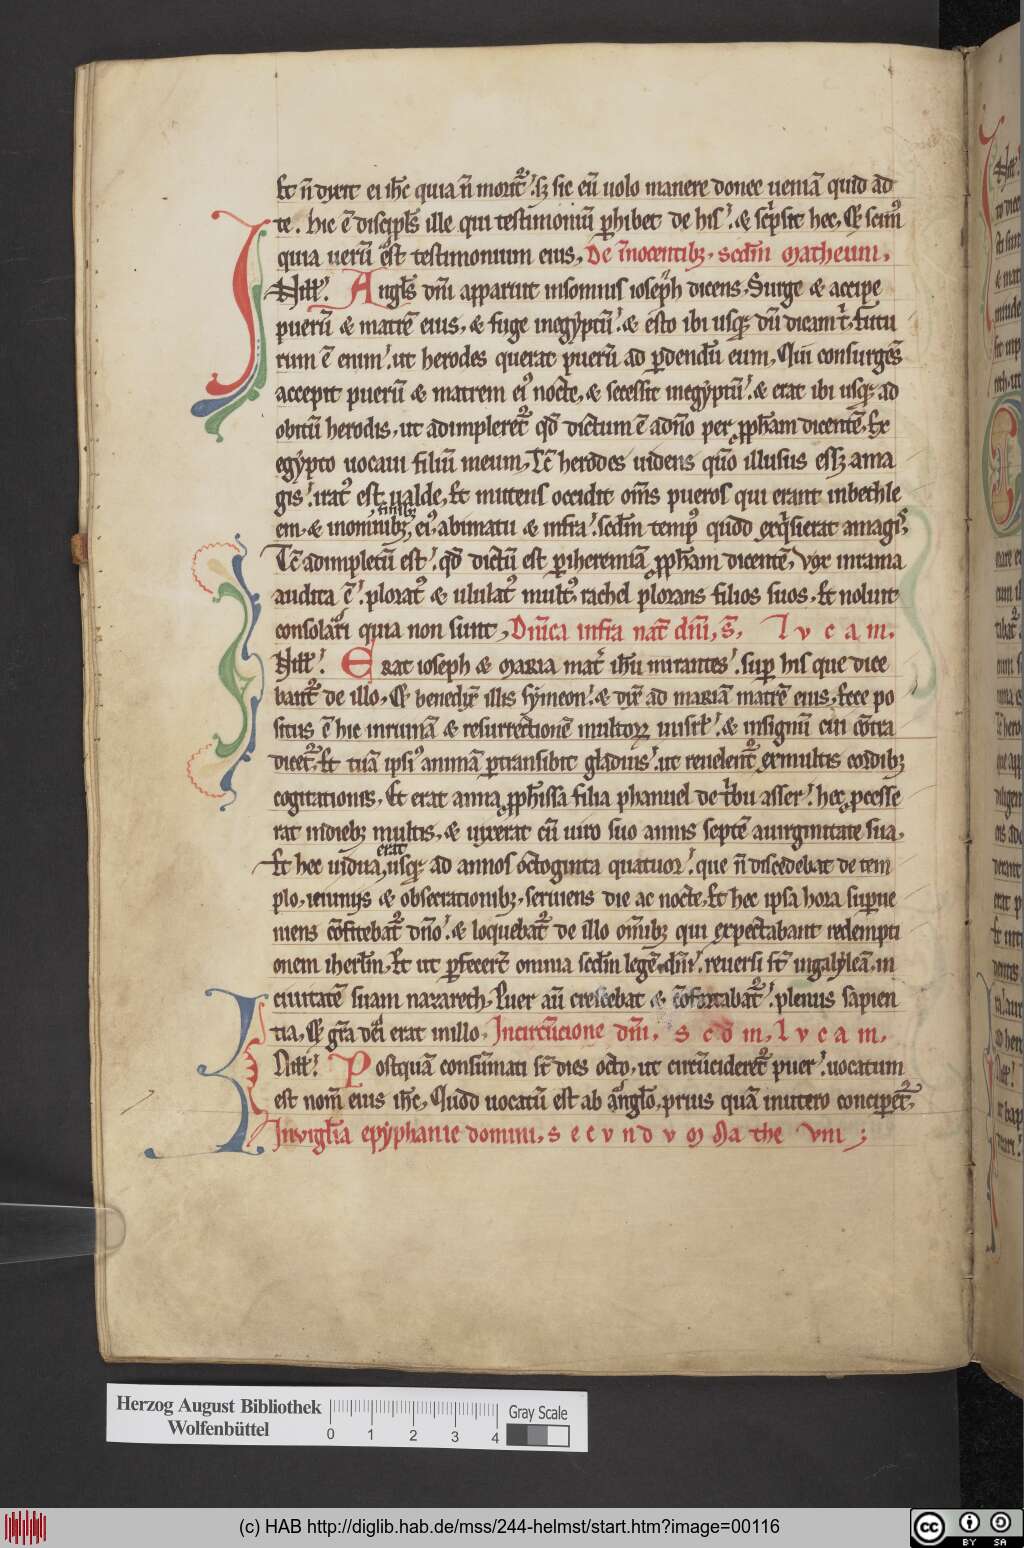 Et n̄ dixit ei ih̄c quia n̄ morit᷑. sꝫ sic eū uolo manere donec ueniā quid ad
te. Hic ē discipl̄s ille qui testimoniū ꝑhibet de his. & sc̄psit hec, Et scim᷒
quia uerū est testimonium eius, De īnocentibꝫ. scdm̄ Matheum.
N ill̄. Angl̄s dn̄i apparuit insomnis ioseph dicens, Surge & accipe
puerū & matrē eius, & fuge inegyptū. & esto ibi usqꝫ dū dicam t̄. futu
rum ē enim. ut herodes querat puerū ad ꝑdendū eum, Qui consurgēs
accepit puerū & matrem ei᷒ nocte, & secessit inegyptū. & erat ibi usqꝫ ad
obitū herodis, ut adimpleret᷑ qd̄ dictum ē adn̄o per ꝓph̄am dicentē, Ex
egypto uocaui filiū meum, Tc̄ herodes uidens qūo illusus essꝫ ama
gis. irat᷒ est ualde, Et mittens occidit om̄s pueros qui erant inbethle
finibꝫ
em, & inomnibꝫ ei᷒, abimatu & infra. scdm̄ temp᷒ quod exqͥsierat amagis,
Tc̄ adimpletū est. qd̄ dictū est ꝑiheremiā ꝓph̄am dicentē, Vox inrama
audita ē. plorat᷒ & ululat᷒ mult᷒, rachel plorans filios suos, Et noluit
consolari quia non sunt, Dn̄ica infra nat̄ dn̄i, S̄. Lvcam.
N ill̄. Erat ioseph & Maria mat̄ ih̄u mirantes. suꝑ his que dice
bant᷑ de illo, Et benedix̄ illis symeon. & dix̄ ad mariā matrē eius, Ecce po
situs ē hic inruinā & resurrectionē multorꝫ inisrl̄. & insignū cui cōtra
dicet᷑, Et tuā ipsi᷒ animā ꝑtransibit gladius. ut reuelent᷑ exmultis cordibꝫ
cogitationes, Et erat anna ꝓph̄issa filia phanuel de tͥbu asser. hec ꝓcesse
rat indiebꝫ multis, & uixerat cū uiro suo annis septē auirginitate sua,
erat
Et hec uidua usqꝫ ad annos octoginta quatuor. que n̄ discedebat de tem
plo, ieiuniis & obsecrationibꝫ, seruiens die ac nocte, Et hec ipsa hora suꝑue
niens cōfitebat᷑ dn̄o. & loquebat᷑ de illo om̄ibꝫ qui expectabant redempti
onem iherl̄m, Et ut ꝑfecer̄t omnia scdm̄ legē dn̄i. reuersi st̄ ingalyleā, in
ciuitatē suam nazareth, Puer aū crescebat & cōfortabat᷑. plenus sapien
tia, Et gr̄a dei erat inillo, Incircūcione dn̄i, scd̄m, Lvcam,
N ill̄. Postquā consūmati st̄ dies octo, ut circūcideret᷑ puer. uocatum
est nom̄ eius ih̄c, Quod uocatū est ab angl̄o, prius quā inutero conciꝑet᷑,
Invigl̄ia epyphanie domini, secvndvm Mathevm;
Herzog August Bibliothek
Wolfenbüttel
0 1 2 3 4
Gray Scale
(c) HAB http://diglib.hab.de/mss/244-helmst/start.htm?image=00116
cc BY SA